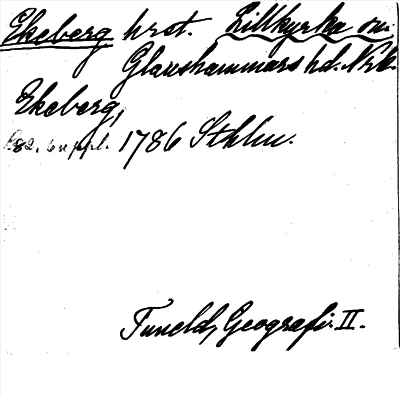 Ekeberg hrst. Lillkyrka sn.
Glanshammars hd. Nrk.
Ekeberg,
s. 82. 6 uppl. 1786 Sthlm.
Tuneld, Geografi. II.